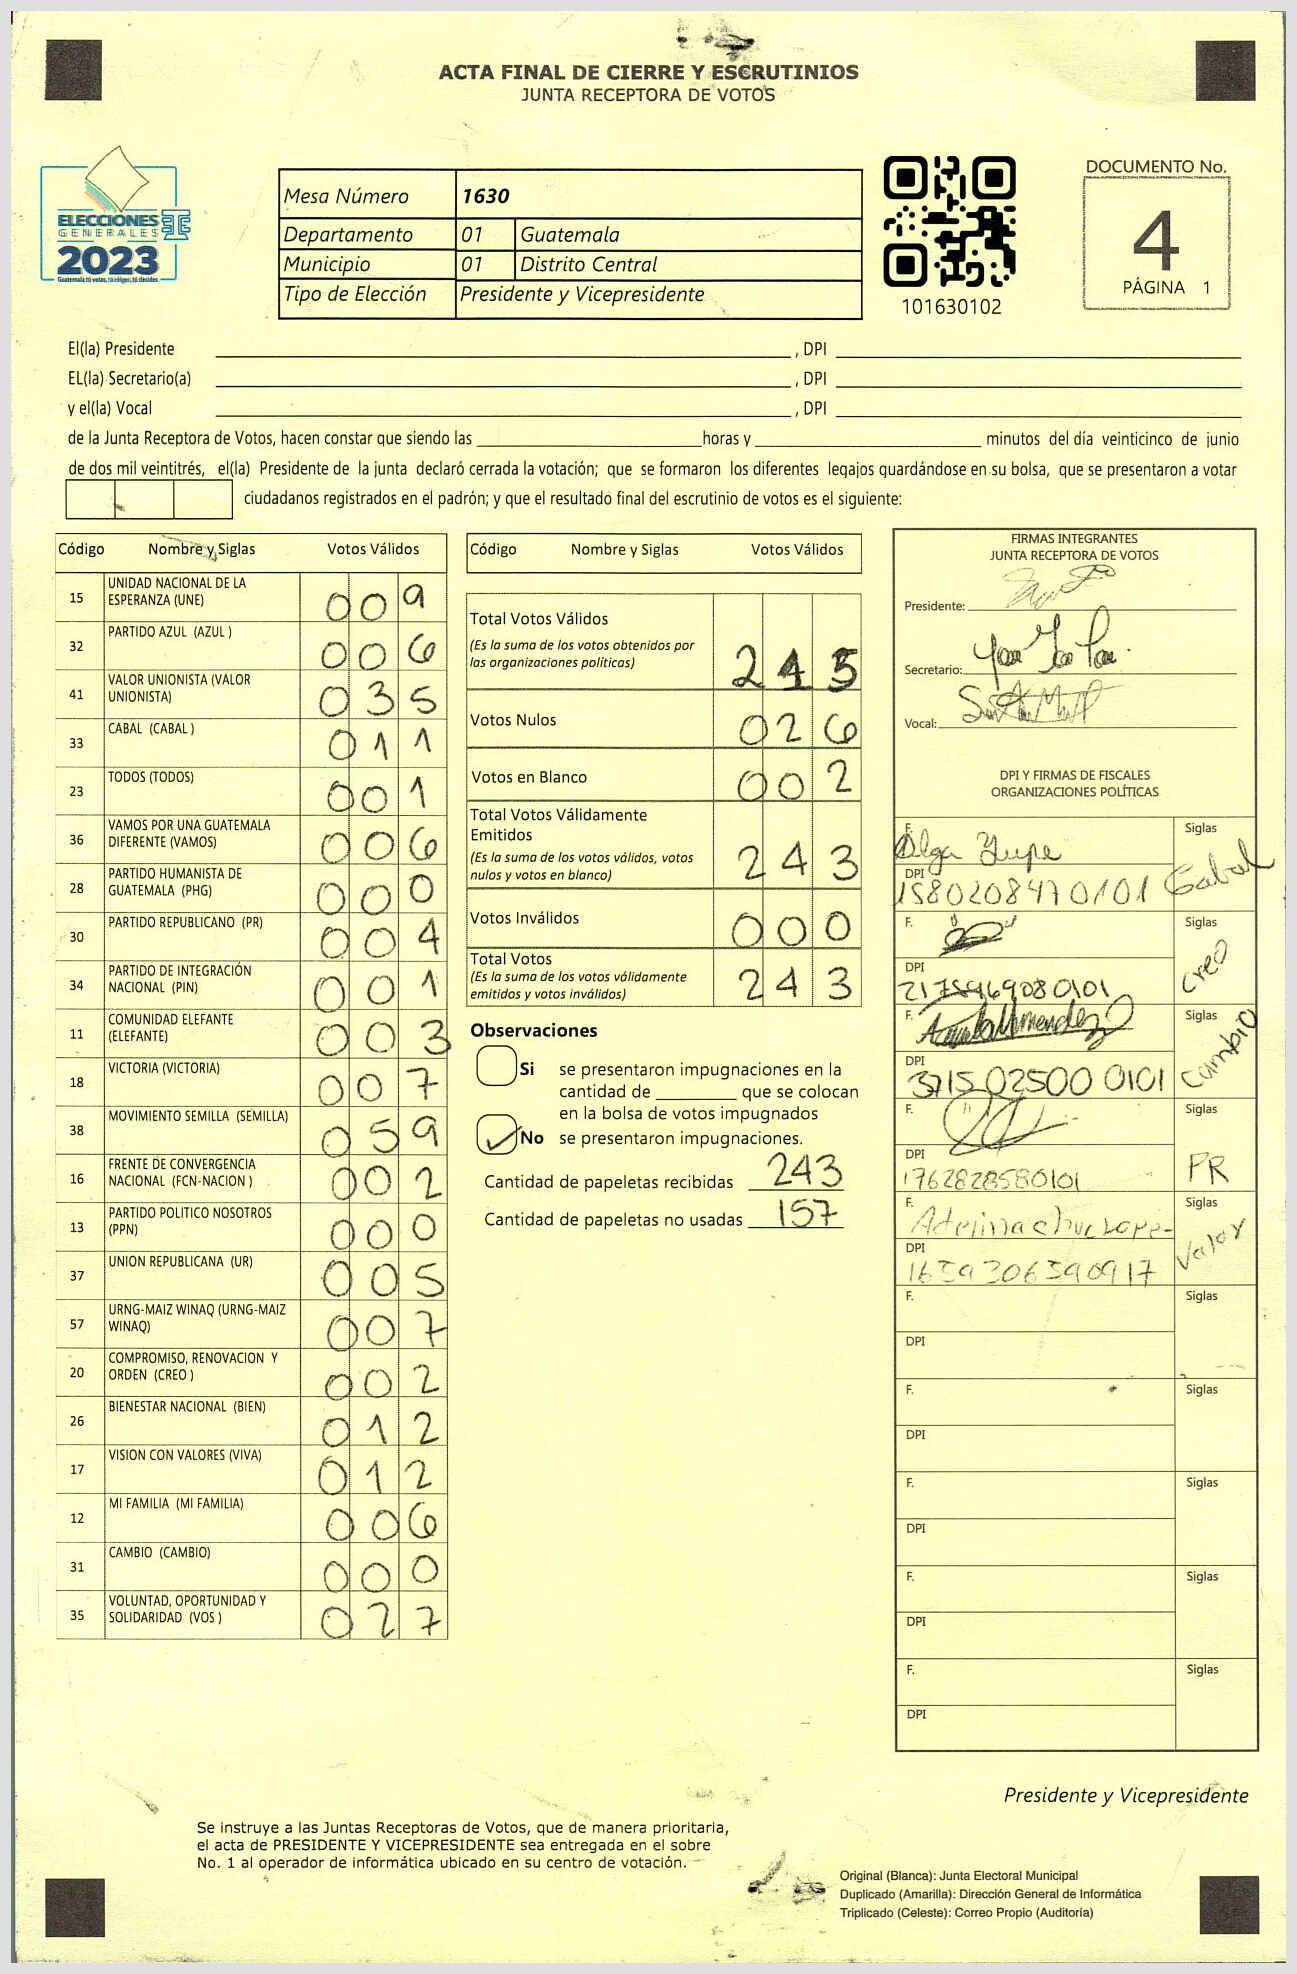 ACTA FINAL DE CIERRE Y ESCRUTINIOS
JUNTA RECEPTORA DE VOTOS
ELECCIONES
GENERALES
2023
Guatemala tú votas, tú eliges, tú decides
Mesa Número 1630
Departamento 01 Guatemala
Municipio 01 Distrito Central
Tipo de Elección Presidente y Vicepresidente
101630102
DOCUMENTO No.
4
PÁGINA 1
El(la) Presidente , DPI
EL(la) Secretario(a) , DPI
y el(la) Vocal , DPI
de la Junta Receptora de Votos, hacen constar que siendo las horas y minutos del día veinticinco de junio
de dos mil veintitrés, el(la) Presidente de la junta declaró cerrada la votación; que se formaron los diferentes legajos guardándose en su bolsa, que se presentaron a votar
ciudadanos registrados en el padrón; y que el resultado final del escrutinio de votos es el siguiente:
Código Nombre y Siglas Votos Válidos
15 UNIDAD NACIONAL DE LA ESPERANZA (UNE) 009
32 PARTIDO AZUL (AZUL ) 006
41 VALOR UNIONISTA (VALOR UNIONISTA) 035
33 CABAL (CABAL ) 011
23 TODOS (TODOS) 001
36 VAMOS POR UNA GUATEMALA DIFERENTE (VAMOS) 006
28 PARTIDO HUMANISTA DE GUATEMALA (PHG) 000
30 PARTIDO REPUBLICANO (PR) 004
34 PARTIDO DE INTEGRACIÓN NACIONAL (PIN) 001
11 COMUNIDAD ELEFANTE (ELEFANTE) 003
18 VICTORIA (VICTORIA) 007
38 MOVIMIENTO SEMILLA (SEMILLA) 059
16 FRENTE DE CONVERGENCIA NACIONAL (FCN-NACION ) 002
13 PARTIDO POLITICO NOSOTROS (PPN) 000
37 UNION REPUBLICANA (UR) 005
57 URNG-MAIZ WINAQ (URNG-MAIZ WINAQ) 007
20 COMPROMISO, RENOVACION Y ORDEN (CREO ) 002
26 BIENESTAR NACIONAL (BIEN) 012
17 VISION CON VALORES (VIVA) 012
12 MI FAMILIA (MI FAMILIA) 006
31 CAMBIO (CAMBIO) 000
35 VOLUNTAD, OPORTUNIDAD Y SOLIDARIDAD (VOS ) 027
Código Nombre y Siglas Votos Válidos
Total Votos Válidos
(Es la suma de los votos obtenidos por
las organizaciones políticas) 2 5
Votos Nulos 026
Votos en Blanco 002
Total Votos Válidamente
Emitidos
(Es la suma de los votos válidos, votos
nulos y votos en blanco) 243
Votos Inválidos 000
Total Votos
(Es la suma de los votos válidamente
emitidos y votos inválidos) 243
Observaciones
Si se presentaron impugnaciones en la
cantidad de que se colocan
en la bolsa de votos impugnados
No se presentaron impugnaciones.
Cantidad de papeletas recibidas 243
Cantidad de papeletas no usadas 157
FIRMAS INTEGRANTES
JUNTA RECEPTORA DE VOTOS
Presidente:
Secretario:
Vocal:
DPI Y FIRMAS DE FISCALES
ORGANIZACIONES POLÍTICAS
F. Siglas
Olga Yupe
DPI
1580208470101 Cabal
F. Siglas
DPI Creo
F. Siglas
DPI Cambio
3715025000101
F. Siglas
DPI PR
1762828580101
F. Siglas
DPI Valor
F. Siglas
DPI
F. Siglas
DPI
F. Siglas
DPI
F. Siglas
DPI
F. Siglas
DPI
Presidente y Vicepresidente
Se instruye a las Juntas Receptoras de Votos, que de manera prioritaria,
el acta de PRESIDENTE Y VICEPRESIDENTE sea entregada en el sobre
No. 1 al operador de informática ubicado en su centro de votación.
Original (Blanca): Junta Electoral Municipal
Duplicado (Amarilla): Dirección General de Informática
Triplicado (Celeste): Correo Propio (Auditoría)